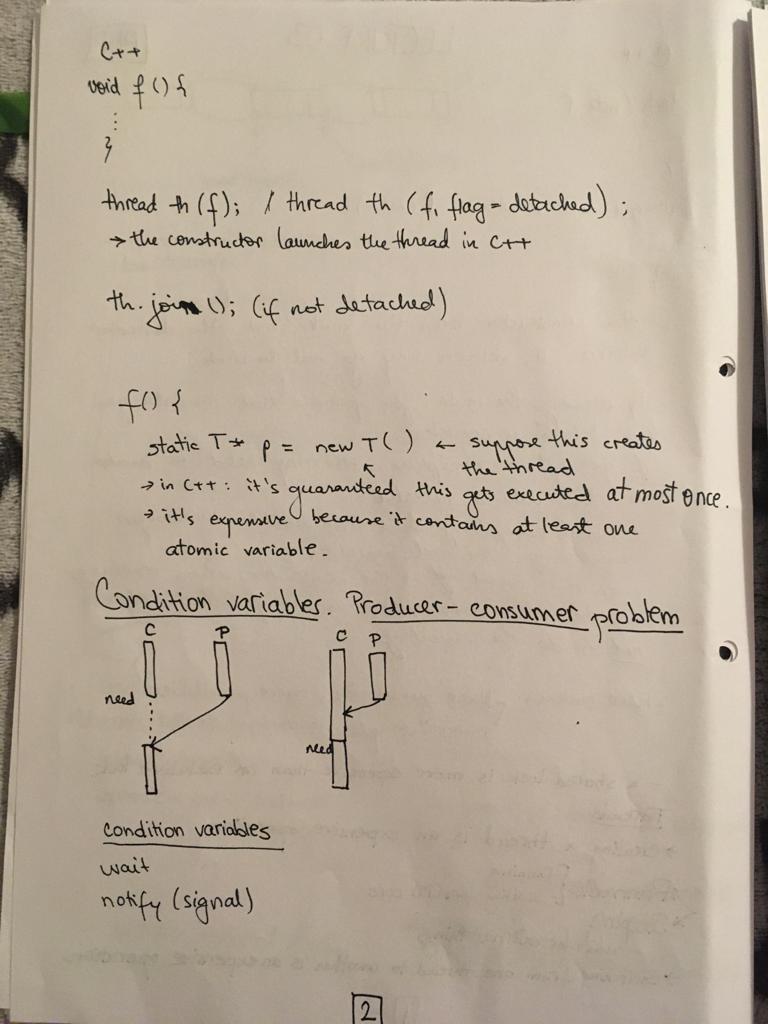 C++
void f() {
⋮
}
thread th(f); / thread th (f, flag = detached);
→ the constructor launches the thread in C++
th.join(); (if not detached)
f() {
static T* p = new T() ← suppose this creates
the thread
→ in C++: it's guaranteed this gets executed at most once.
→ it's expensive because it contains at least one
atomic variable.
Condition variables. Producer-consumer problem
C P C P
need
need
condition variables
wait
notify (signal)
2